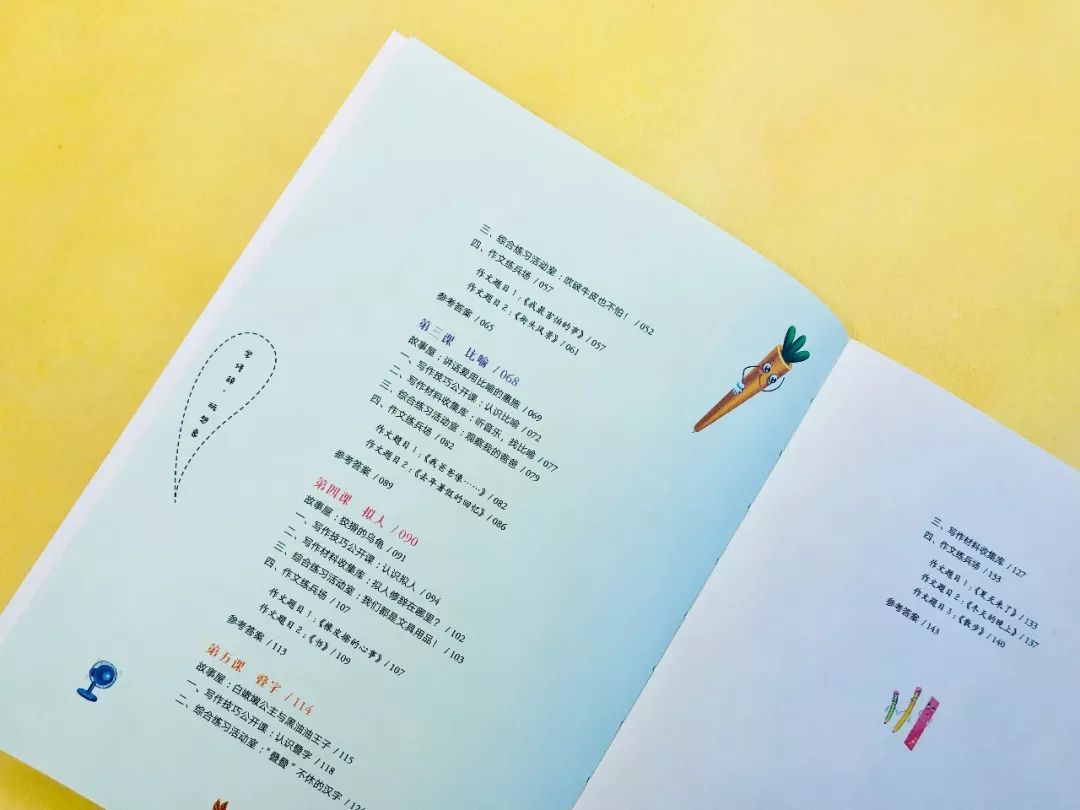 三、综合练习活动室：吹破牛皮也不怕！ /052
四、作文练兵场 /057
作文题目1：《我最害怕的事》/057
作文题目2：《街头风景》/061
参考答案 /065
第三课 比喻 /068
故事屋：讲话爱用比喻的惠施 /069
一、写作技巧公开课：认识比喻 /072
二、写作材料收集库：听音乐，找比喻 /077
三、综合练习活动室：观察我的爸爸 /079
四、作文练兵场 /082
作文题目1：《我爸爸像……》/082
作文题目2：《去年暑假的回忆》/086
参考答案 /089
第四课 拟人 /090
故事屋：狡猾的乌龟 /091
一、写作技巧公开课：认识拟人 /094
二、写作材料收集库：拟人修辞在哪里？ /102
三、综合练习活动室：我们都是文具用品！ /103
四、作文练兵场 /107
作文题目1：《橡皮擦的心事》/107
作文题目2：《书》/109
参考答案 /113
第五课 叠字 /114
故事屋：白嫩嫩公主与黑油油王子 /115
一、写作技巧公开课：认识叠字 /118
二、综合练习活动室：“叠叠”不休的汉字
三、写作材料收集库 /127
四、作文练兵场 /133
作文题目1：《夏天来了》/133
作文题目2：《冬天的晚上》/137
作文题目3：《散步》/140
参考答案 /143